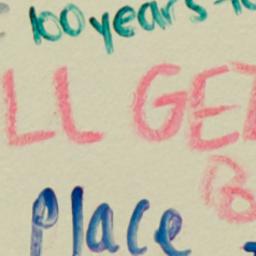 100 years
LL GE
Po
Place